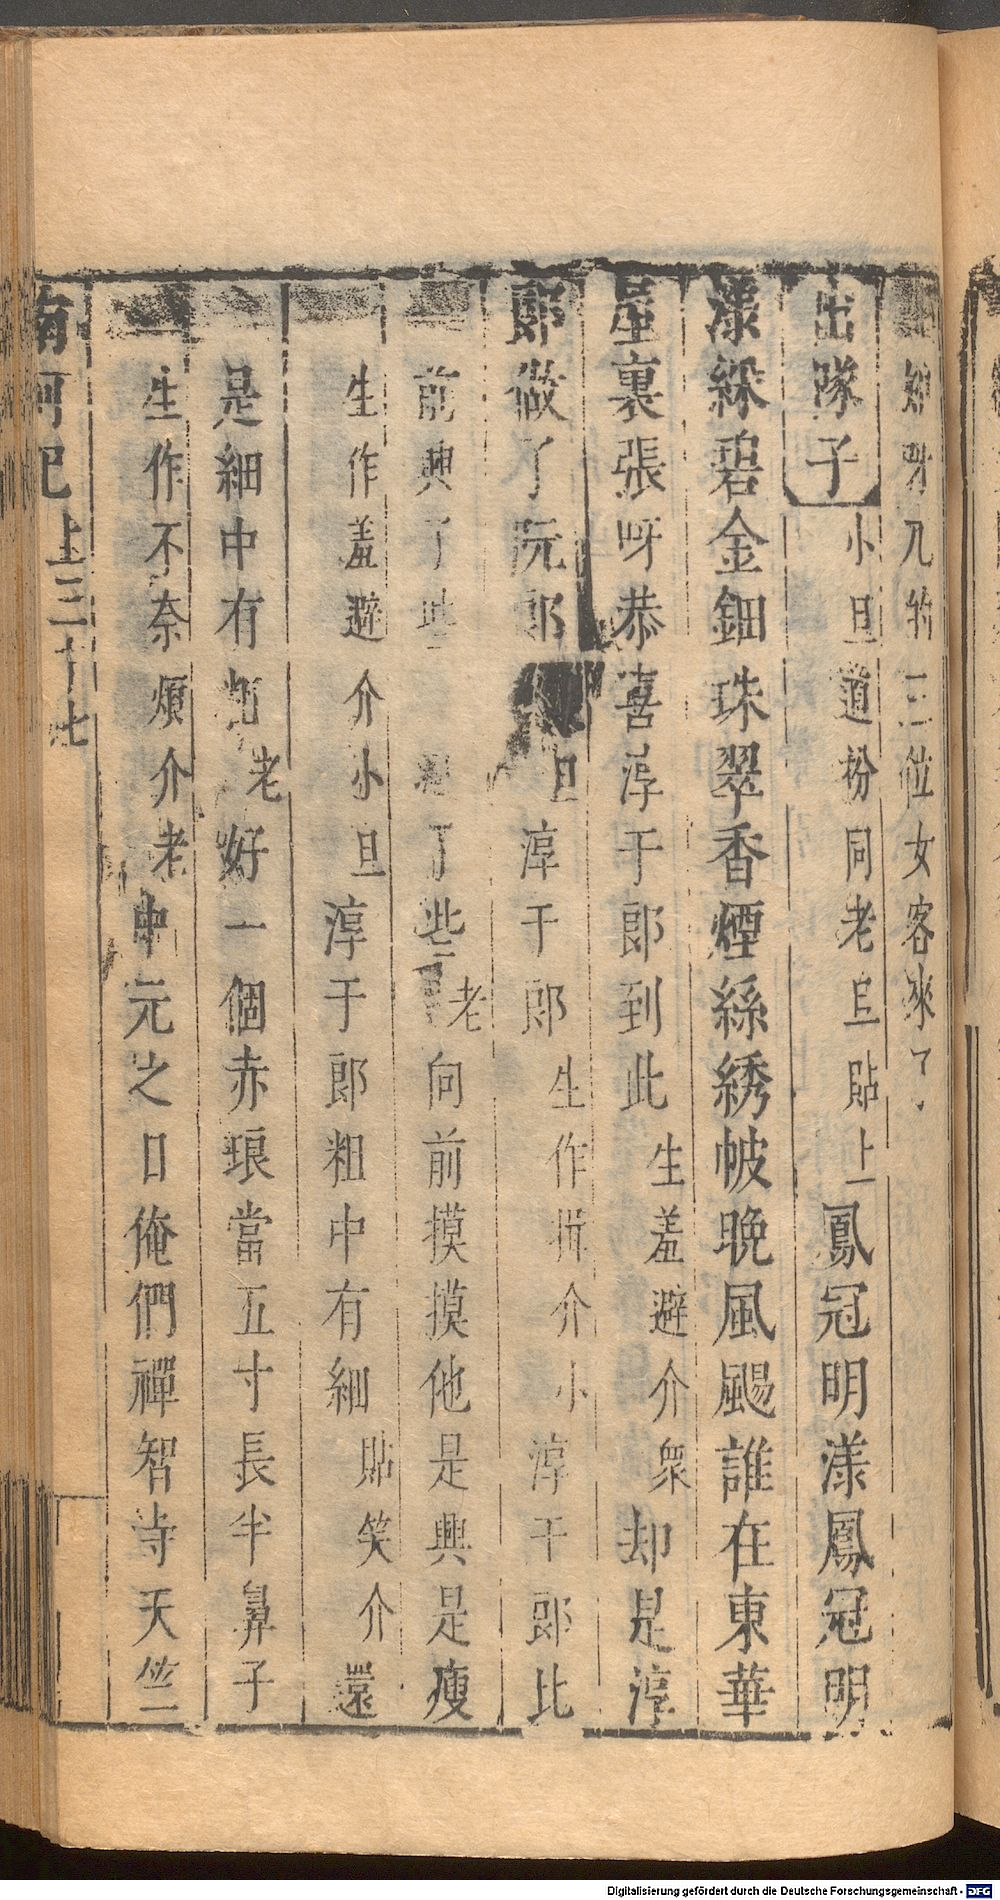 呀兀的三位女客來了
出隊子 小旦道扮同老旦貼上 鳳冠明漾鳳冠明
漾綵碧金鈿珠翠香煙絲綉帔晚風颺誰在東華
屋裏張呀恭喜淳于郎到此 生羞避介衆 却是淳
郎做了阮郎 旦 淳于郎 生作 介小 淳于郎比
前興了些 了些 老 向前摸摸他是興是瘦
生作羞避介小旦 淳于郎粗中有細 貼笑介 還
是細中有粗 老 好一個赤琅當五寸長半鼻子
生作不奈煩介老 中元之日俺們禪智寺天竺
南柯記 上 三十七
Digitalisierung gefördert durch die Deutsche Forschungsgemeinschaft - DFG